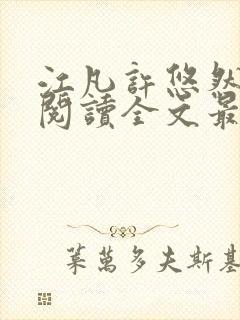 江凡許悠然
閱讀全文最
萊萬多夫斯基